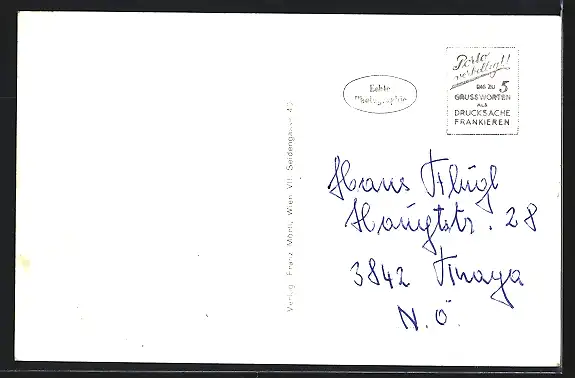 Echte
Photographie
Porto
verbilligt!
BIS ZU 5
GRUSSWORTEN
ALS
DRUCKSACHE
FRANKIEREN
Verlag Franz Mörtl, Wien VII, Seidengasse 42
Hans Flügl
Hauptstr. 28
3842 Thaya
N.Ö.